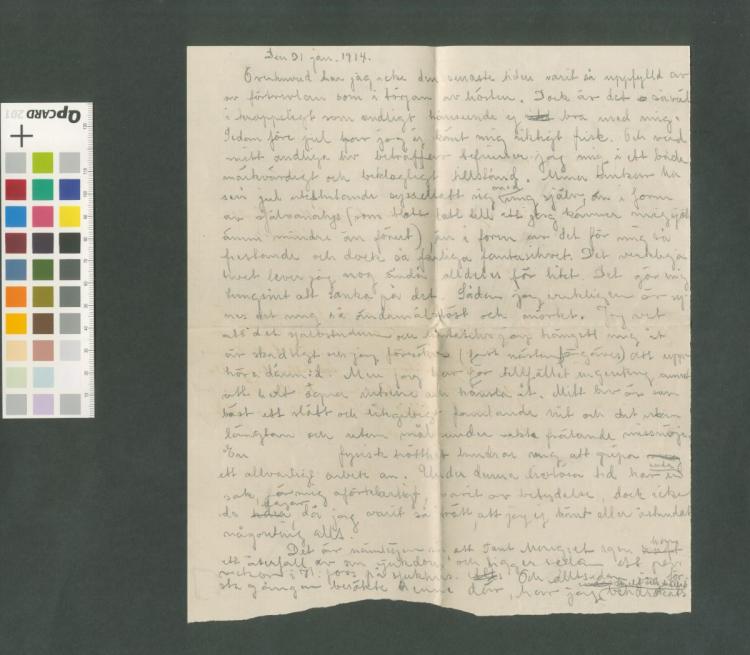 Den 31 jan. 1914.
har jag icke den senaste tiden varit så uppfylld av
av förtvivlan som i början av hösten. Dock är det
i kroppsligt som andligt hänseende ej bra med mig.
Sedan före jul har jag ej känt mig riktigt frisk. Och vad
mitt andliga liv beträffar befinner jag mig i ett både
märkvärdigt och beklagligt tillstånd. Mina tankar ha
sen jul uteslutande sysselsatt sig med mig själv, än i form
av självanalys (som lett till att jag känner mig själv
ännu mindre än förut) än i form av det för mig så
frestande och dock så farliga fantaseriet. Det verkliga
livet lever jag nog ändå alldeles för litet. Det gör mig
tungsint att tänka på det. Sådan jag verkligen är sy-
nes det mig så ändamålslöst och mörkt. Jag vet
att det självstudium och jag hängett mig åt
är skadligt och jag försöker (fast nästan förgäves) att upp-
höra därmed. Men jag har för tillfället ingenting annat
att helt ägna intresse och hänsikt åt. Mitt liv är som
bäst ett slött och likgiltigt famlande vid och det utan
längtan och utan mål under missnöje.
En fysisk trötthet hindrar mig att gripa
ett allvarligt arbete an. Under denna tid har en
sak, för mig oförklarligt, varit av betydelse, dock icke
de dagar då jag varit så trött, att jag ej känt eller åstundat
någonting alls.
Det är nämligen så att Tant Margret igen
ett återfall av sin sjukdom och ligger
på sjukhus. Och alltsedan
sta gången besökte henne där, har jag